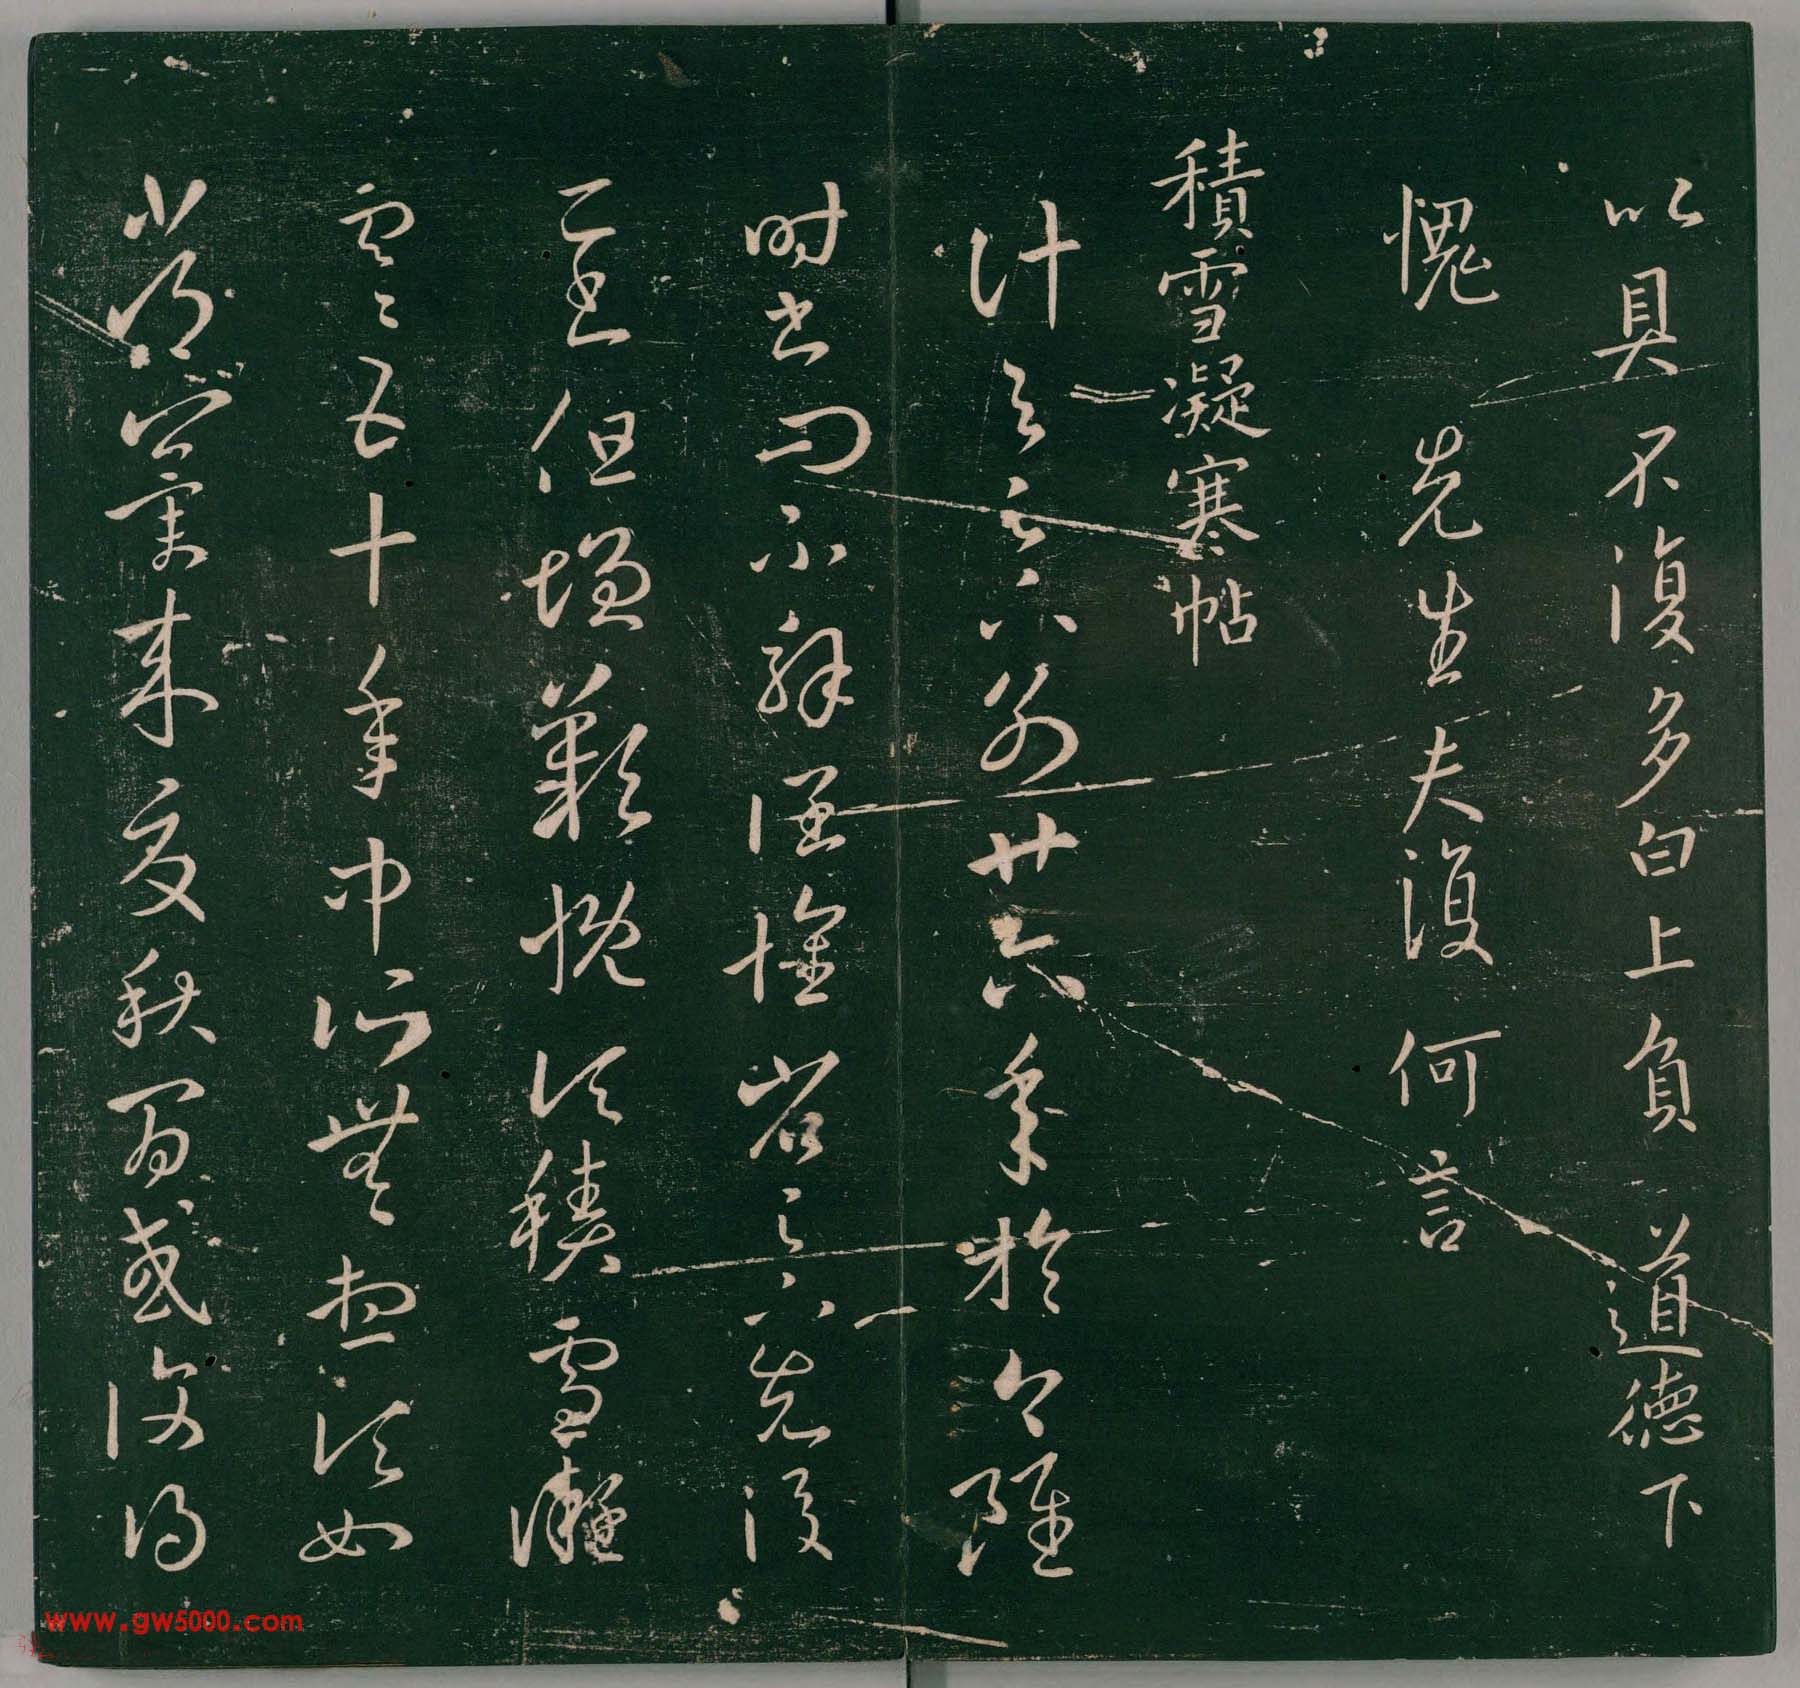 以具不復多白上負道德下
愧先生夫復何言
積雪凝寒帖
計與足下別廿六年於今雖
時書問不解闊懷省足下先後
二書但增歎慨頃積雪凝
寒五十年中所無想頃如
常冀來夏秋間或復得
www.gw5000.com